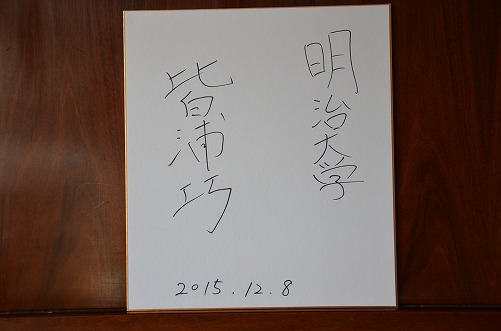 明治大学
皆浦巧
2015.12.8